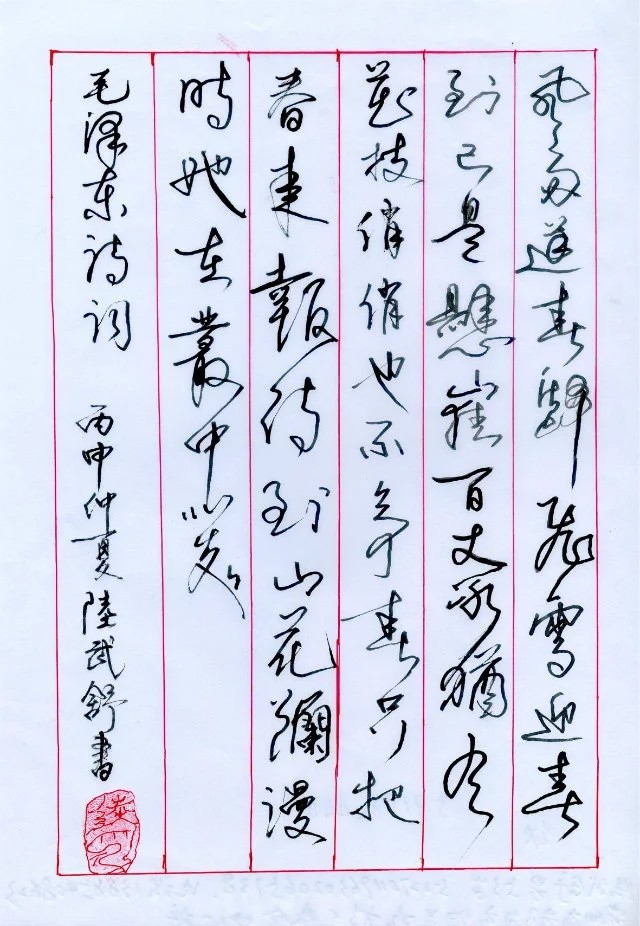 風雨送春歸飛雪迎春
到已是懸崖百丈冰猶有
花枝俏俏也不爭春只把
春來報待到山花爛漫
時她在叢中笑
毛澤東詩詞 丙申仲夏陸武舒書